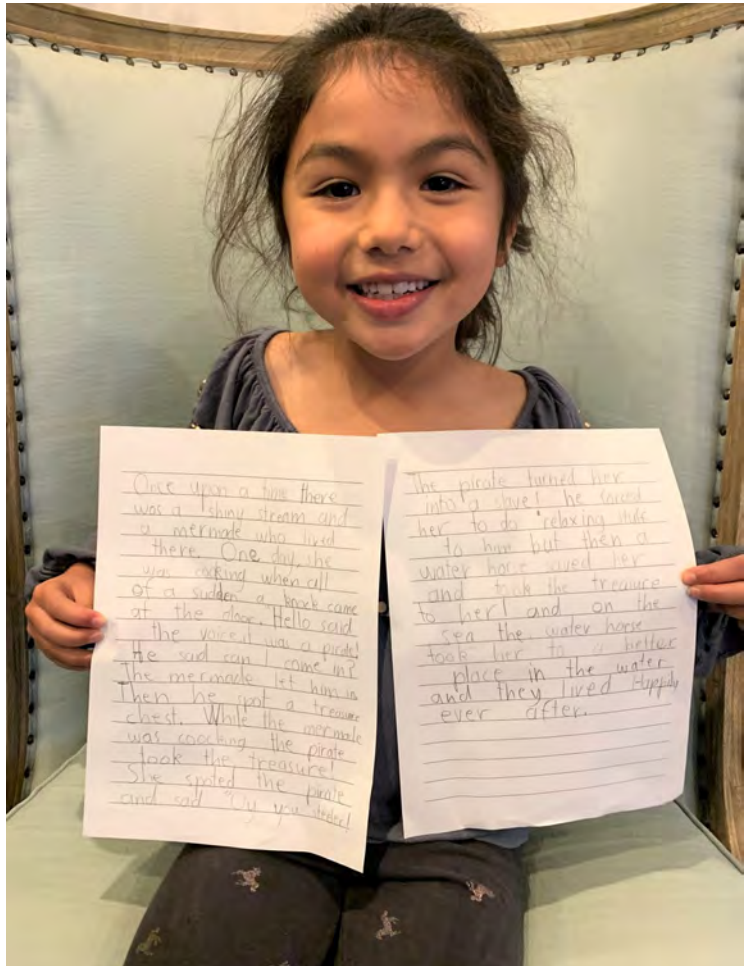 Once upon a time there
was a shiny stream and
a mermade who lived
there. One day, she
was cooking when all
of a sudden a knock came
at the door. Hello said
the voice it was a pirate!
He said can I come in?
The mermade let him in
Then he spot a treasure
chest. While the mermade
was coocking the pirate
took the treasure!
She spoted the pirate
and sad you steeler!
The pirate turned her
into a slave! he forced
her to do relaxing
to him but then a
water horse saved her
and took the treasure
to her! and on the
sea the water horse
took her to a better
place in the water
and they lived Happily
ever after.